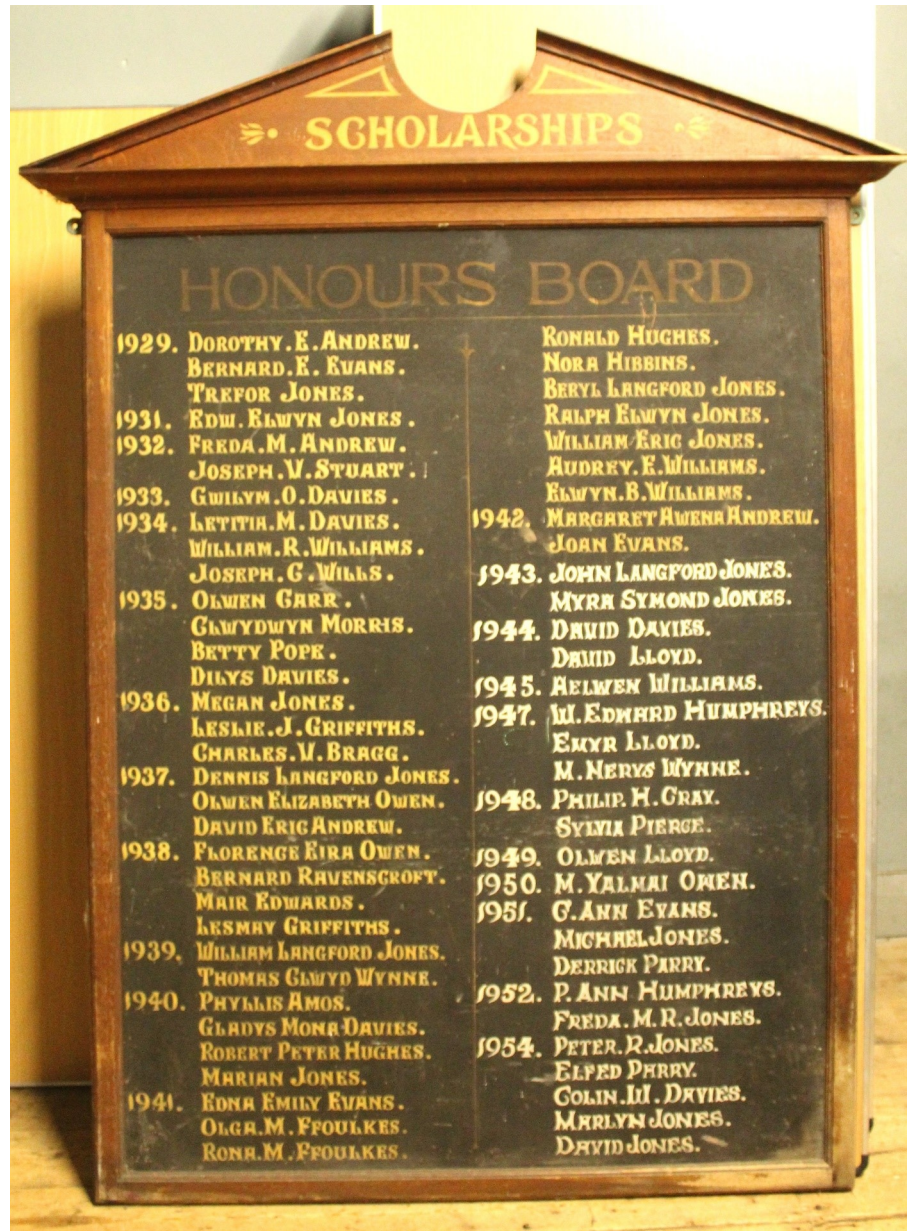 SCHOLARSHIPS
HONOURS BOARD
1929. DOROTHY.E.ANDREW.
BERNARD.E.EVANS.
TREFOR JONES.
1931. EDW.ELWYN JONES.
1932. FREDA.M.ANDREW.
JOSEPH.V.STUART.
1933. GWILYM.O.DAVIES.
1934. LETITIA.M.DAVIES.
WILLIAM.R.WILLIAMS.
JOSEPH.G.WILLS.
1935. OLWEN CARR.
CLWYDWYN MORRIS.
BETTY POPE.
DILYS DAVIES.
1936. MEGAN JONES.
LESLIE.J.GRIFFITHS.
CHARLES.V.BRAGG.
1937. DENNIS LANGFORD JONES.
OLWEN ELIZABETH OWEN.
DAVID ERIC ANDREW.
1938. FLORENCE EIRA OWEN.
BERNARD RAVENSCROFT.
MAIR EDWARDS.
LESMAY GRIFFITHS.
1939. WILLIAM LANGFORD JONES.
THOMAS CLWYD WYNNE.
1940. PHYLLIS AMOS.
GLADYS MONA DAVIES.
ROBERT PETER HUGHES.
MARIAN JONES.
1941. EDNA EMILY EVANS.
OLGA.M.FFOULKES.
RONA.M.FFOULKES.
RONALD HUGHES.
NORA HIBBINS.
BERYL LANGFORD JONES.
RALPH ELWYN JONES.
WILLIAM ERIC JONES.
AUDREY.E.WILLIAMS.
ELWYN.B.WILLIAMS.
1942. MARGARET AWENA ANDREW.
JOAN EVANS.
1943. JOHN LANGFORD JONES.
MYRA SYMOND JONES.
1944. DAVID DAVIES.
DAVID LLOYD.
1945. AELWEN WILLIAMS.
1947. W.EDWARD HUMPHREYS.
EMYR LLOYD.
M.NERYS WYNNE.
1948. PHILIP.H.GRAY.
SYLVIA PIERCE.
1949. OLWEN LLOYD.
1950. M.YALMAI OWEN.
1951. G.ANN EVANS.
MICHAEL JONES.
DERRICK PARRY.
1952. P.ANN HUMPHREYS.
FREDA.M.R.JONES.
1954. PETER.R.JONES.
ELFED PARRY.
COLIN.W.DAVIES.
MARLYN JONES.
DAVID JONES.